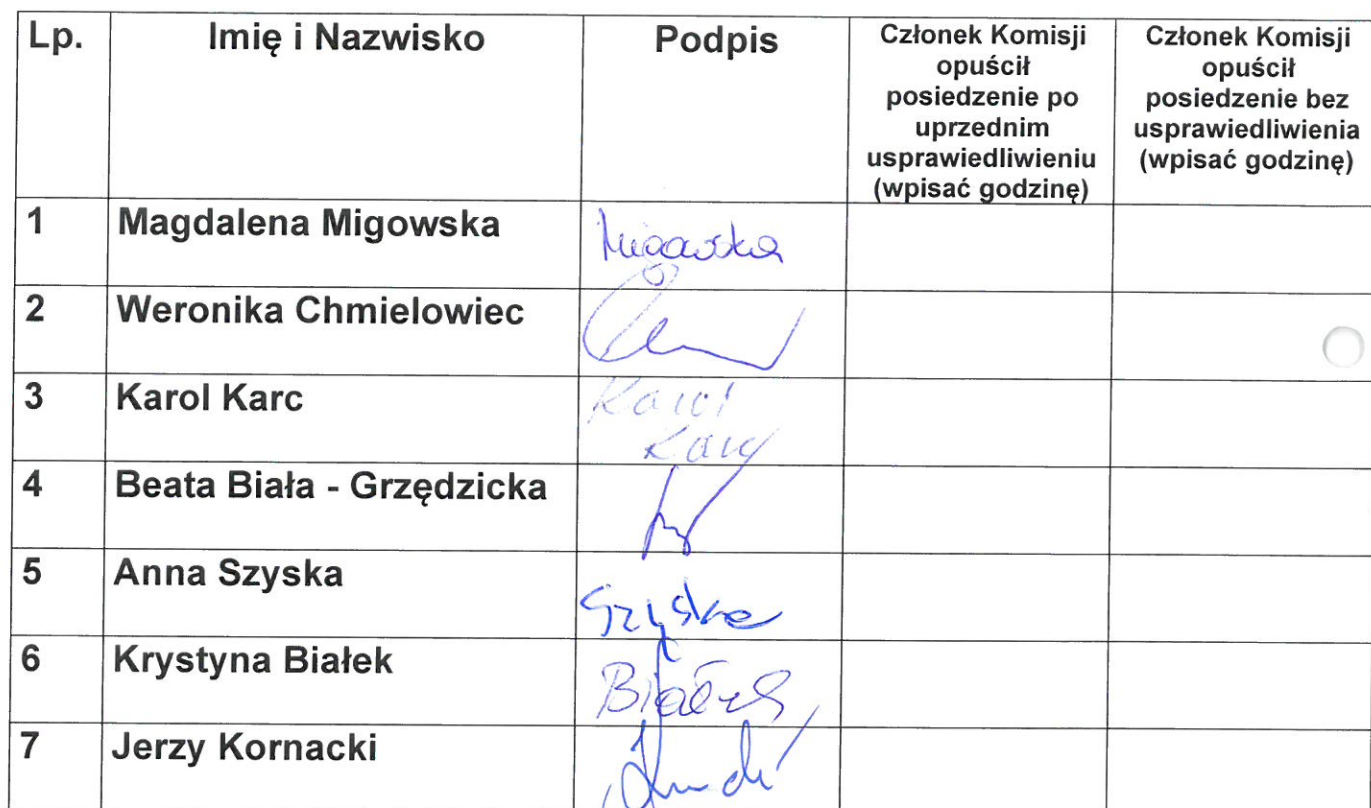 Lp. Imię i Nazwisko Podpis Członek Komisji opuścił posiedzenie po uprzednim usprawiedliwieniu (wpisać godzinę) Członek Komisji opuścił posiedzenie bez usprawiedliwienia (wpisać godzinę)
1 Magdalena Migowska Migowska
2 Weronika Chmielowiec
3 Karol Karc Karol
Karc
4 Beata Biała - Grzędzicka
5 Anna Szyska Szyska
6 Krystyna Białek Białek
7 Jerzy Kornacki